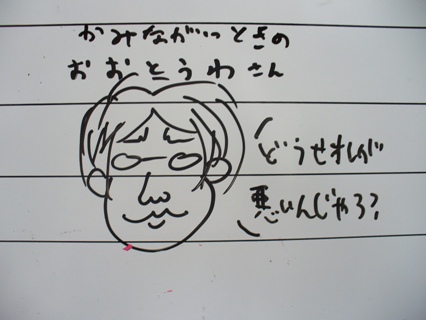 かみながいっときの
おおとうわさん
どうせわしが
悪いんじゃろ?